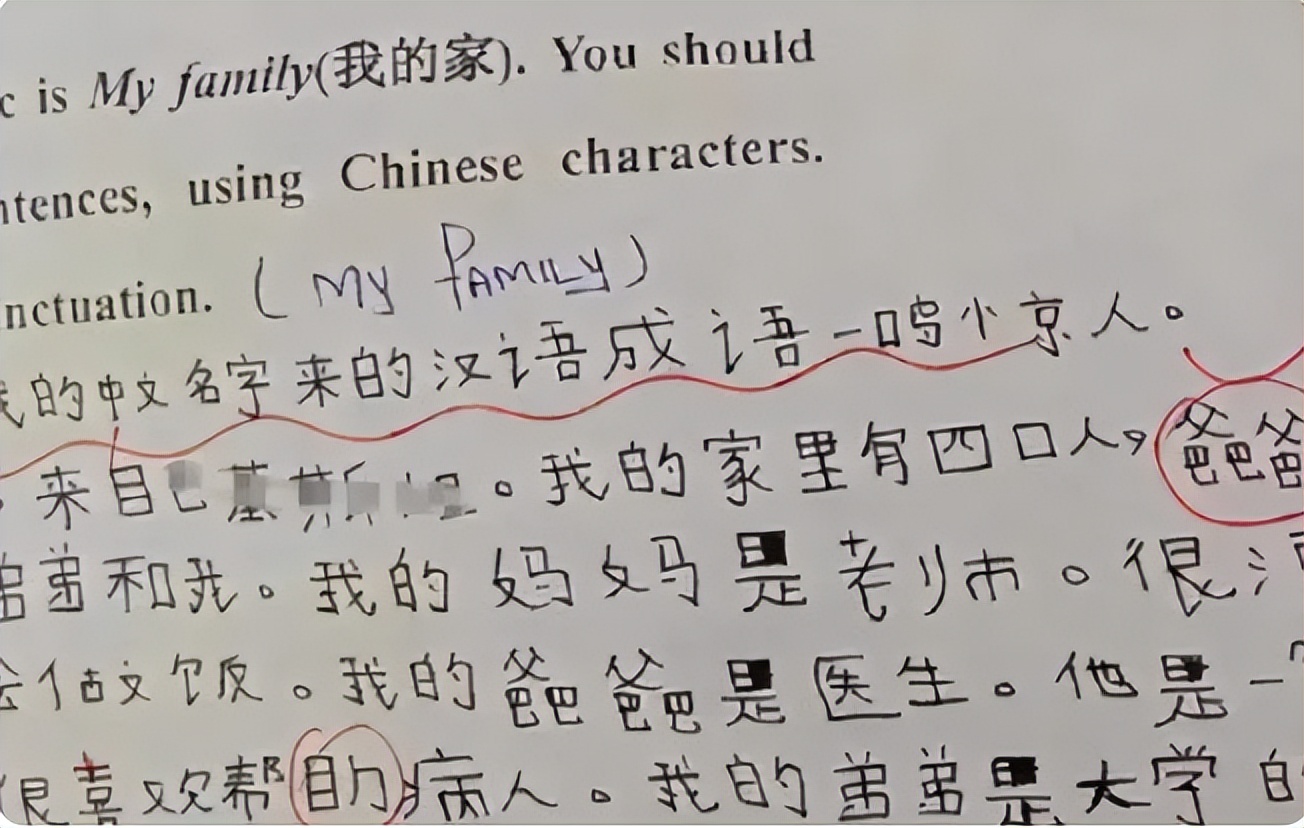 c is My family(我的家). You should
ntences, using Chinese characters.
nctuation. (MY FAMILY)
我的中文名字来的汉语成语一鸣小京人。
来自巴基斯坦。我的家里有四口人,爸爸
弟弟和我。我的妈妈是老师。很漂
会做饭。我的爸爸是医生。他是一个
很喜欢帮助病人。我的弟弟是大学的